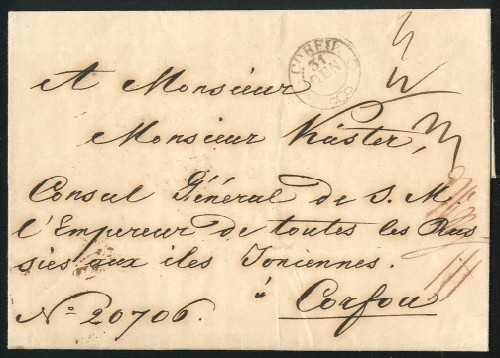 31
GEN
A Monsieur
Monsieur Küster,
Consul Général de S. M.
l'Empereur de toutes les Rus
sies aux iles Ioniennes.
à Corfou
No 20706.